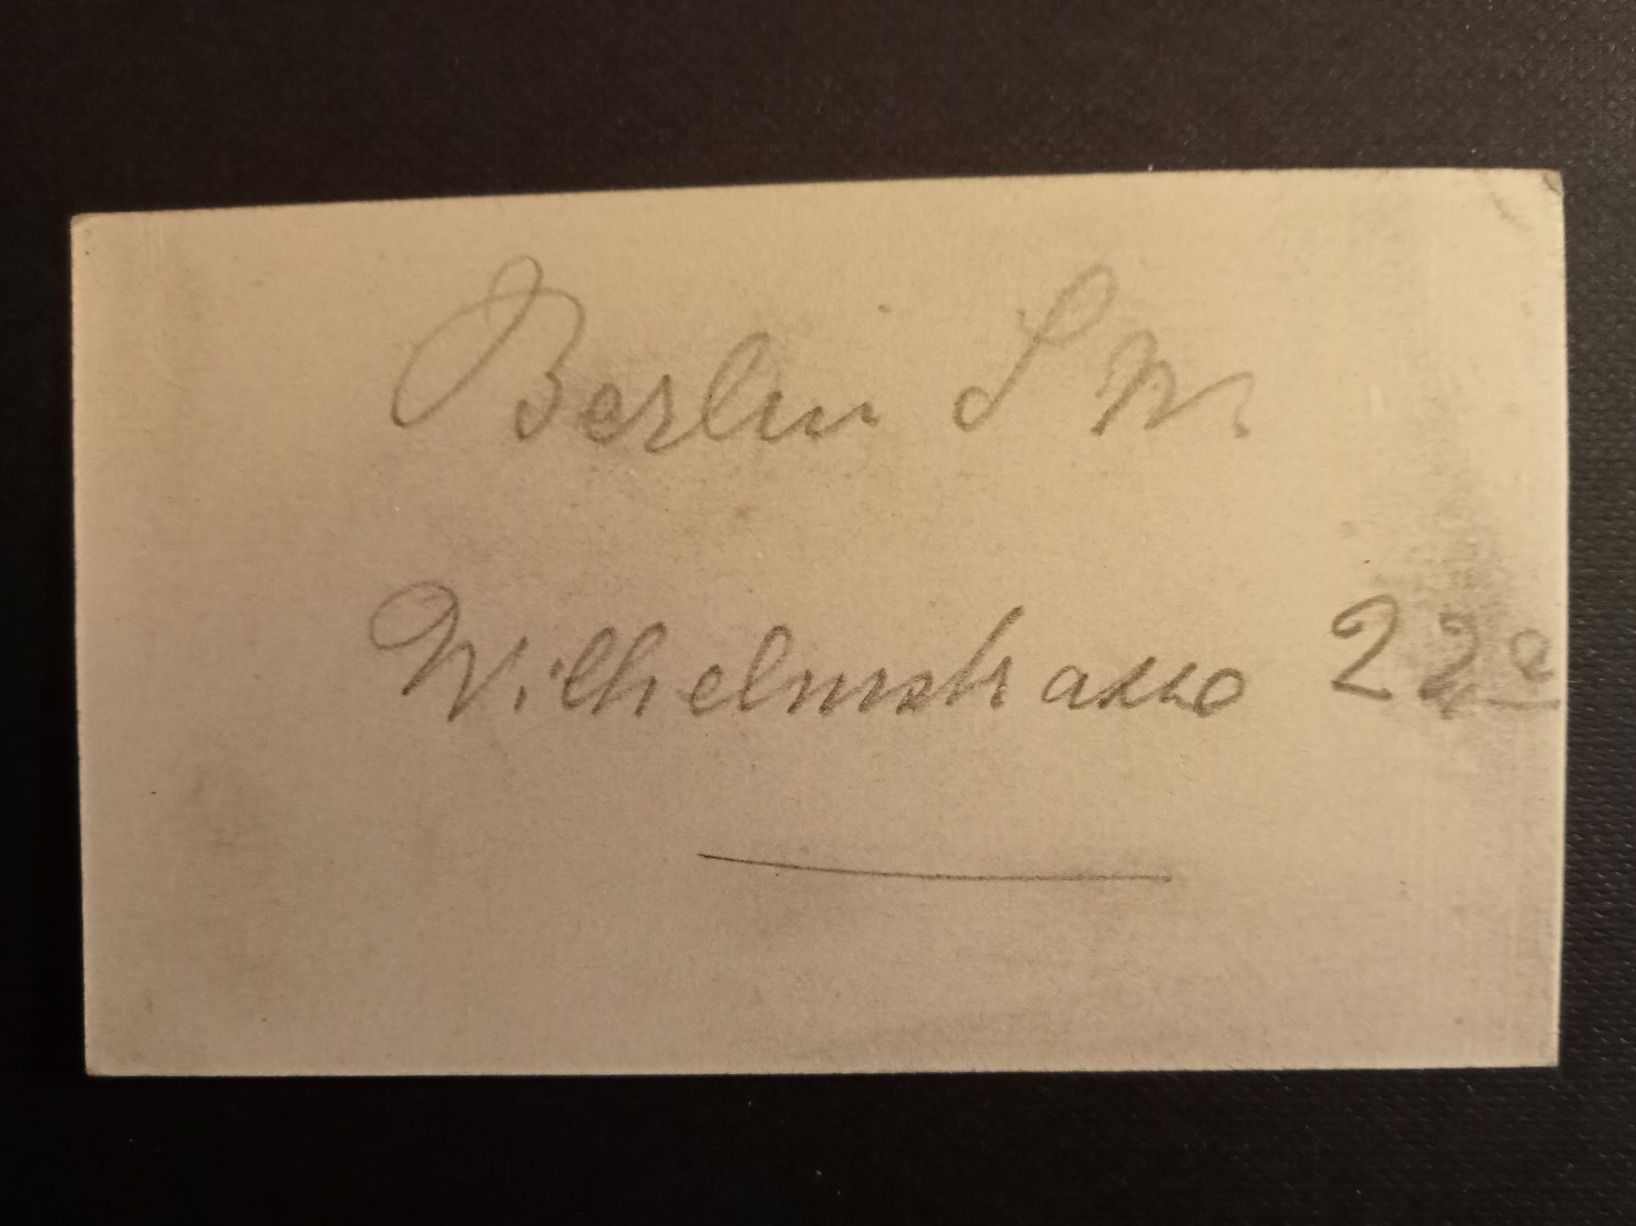 Berlin S W.
Wilhelmstrasse 22a